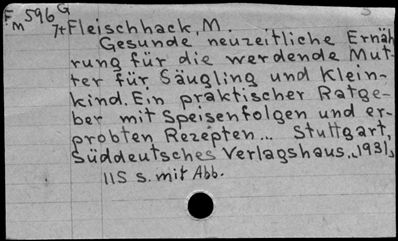 Fm 596 G
7t Fleischhack, M.
Gesunde neuzeitliche Ernäh
rung für die werdende Mut-
ter für Säugling und Klein-
kind. Ein praktischer Ratge-
ber mit Speisenfolgen und er-
probten Rezepten... Stuttgart,
Süddeutsches Verlagshaus, 1931,
115 s. mit Abb.